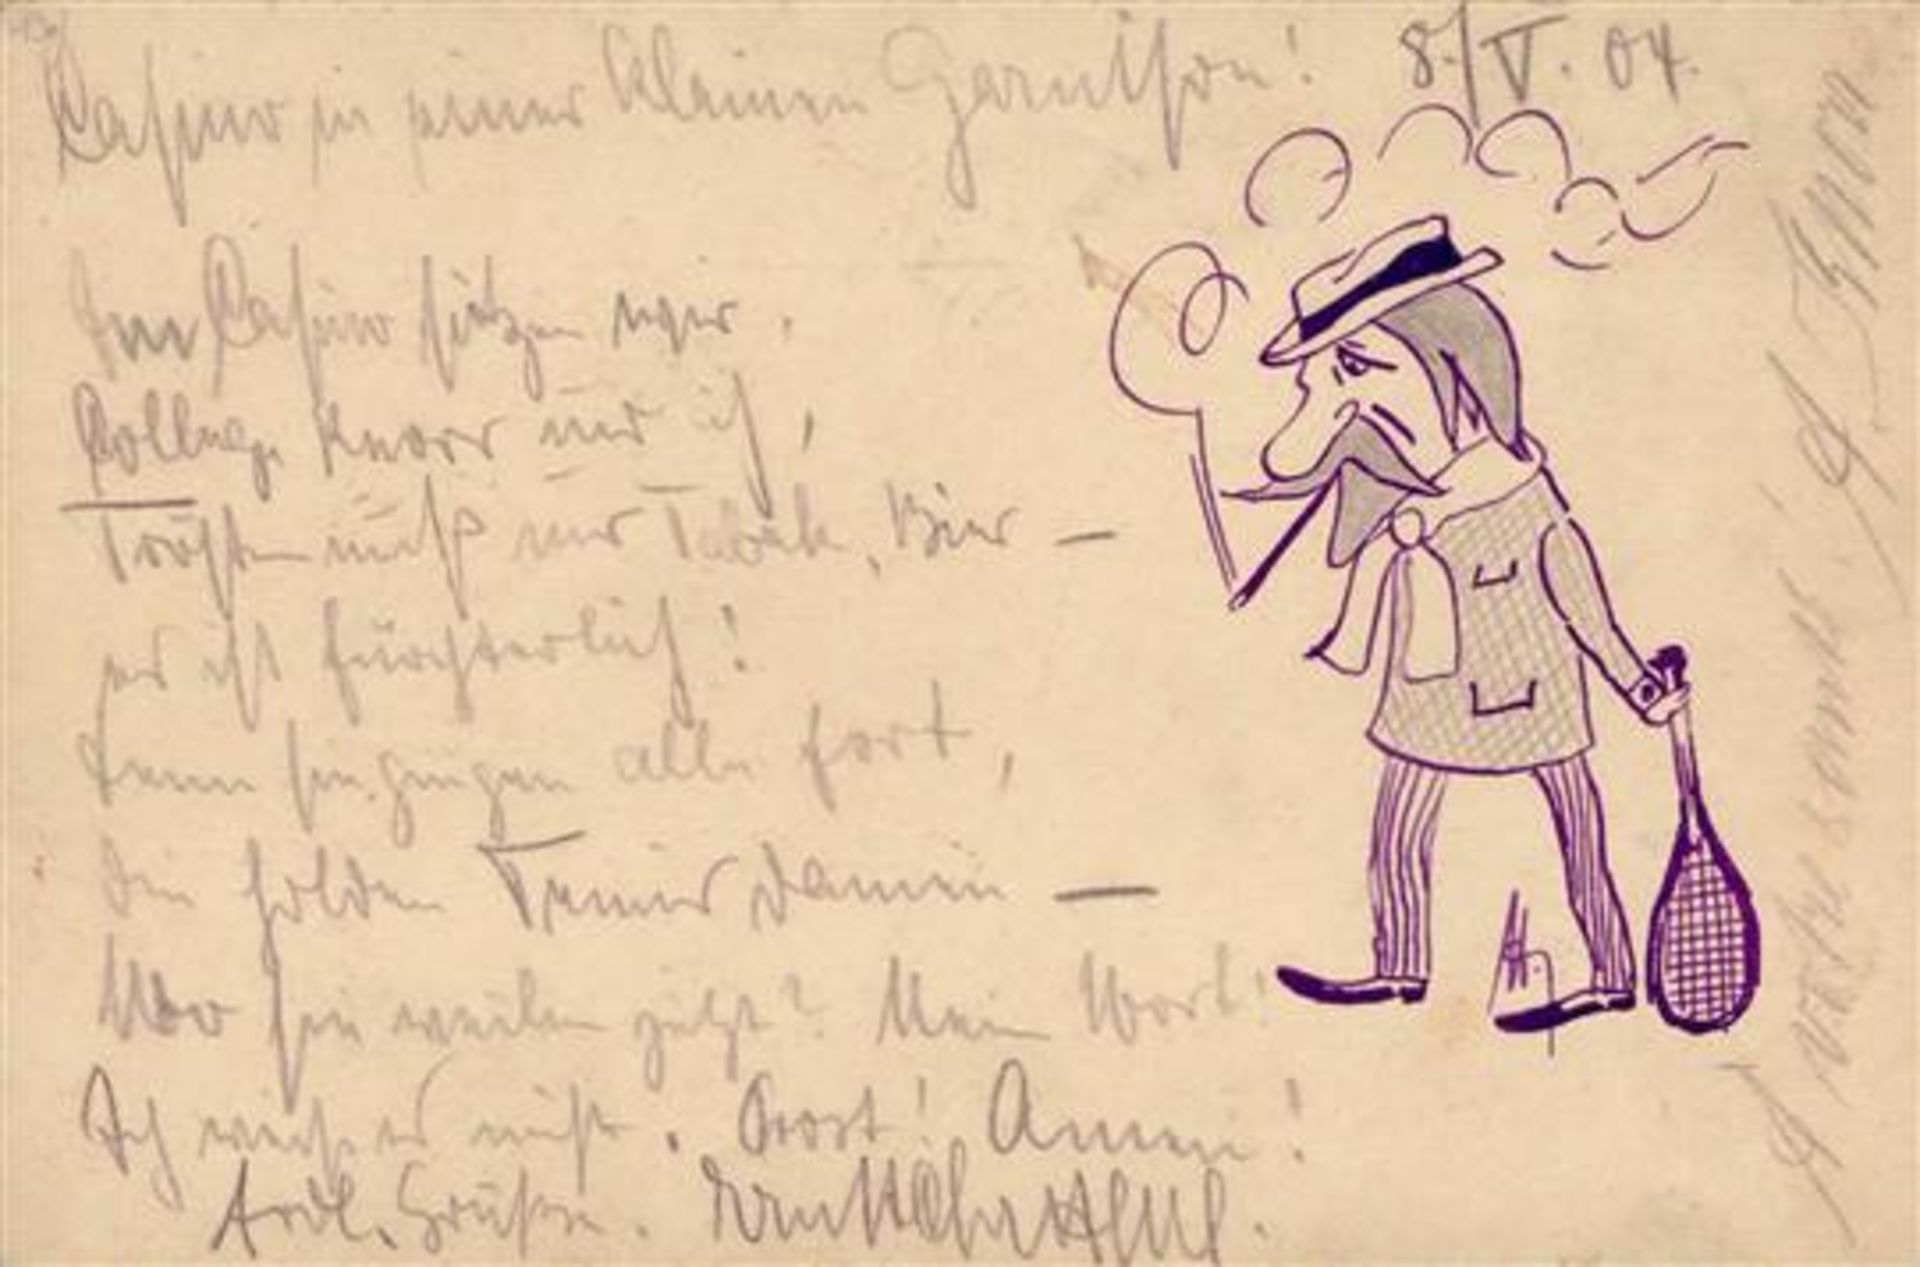 Casino in einer kleinen Garnison! 8./V. 04.
Im Casino sitzen wir,
College Knorr und ich,
Trösten muß nur Tabak, Bier —
es ist fürchterlich!
Denn sie gingen alle fort,
Die holden Tennis Damen —
Wo sie weilen jetzt? Mein Wort!
Ich weiß es nicht. Prost! Amen!
Grüße.